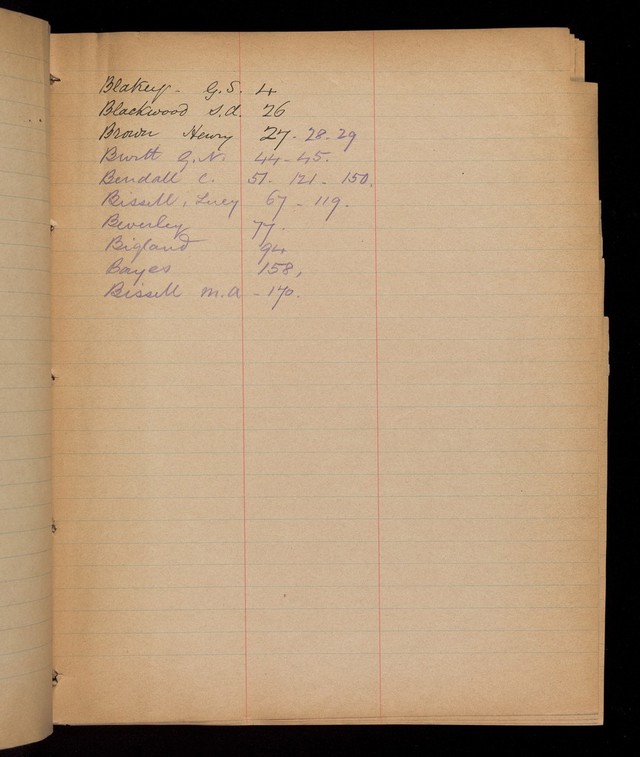 Blakey - G.S. 4
Blackwood S.A. 26
Brown Henry 27 - 28 - 29
G.N. 44 - 45.
Bendall C. 51 - 121 - 150.
Bissell, Lucy 67 - 119.
Beverley 77.
Bigland 94
Bayes 158,
Bissell M.A - 170.